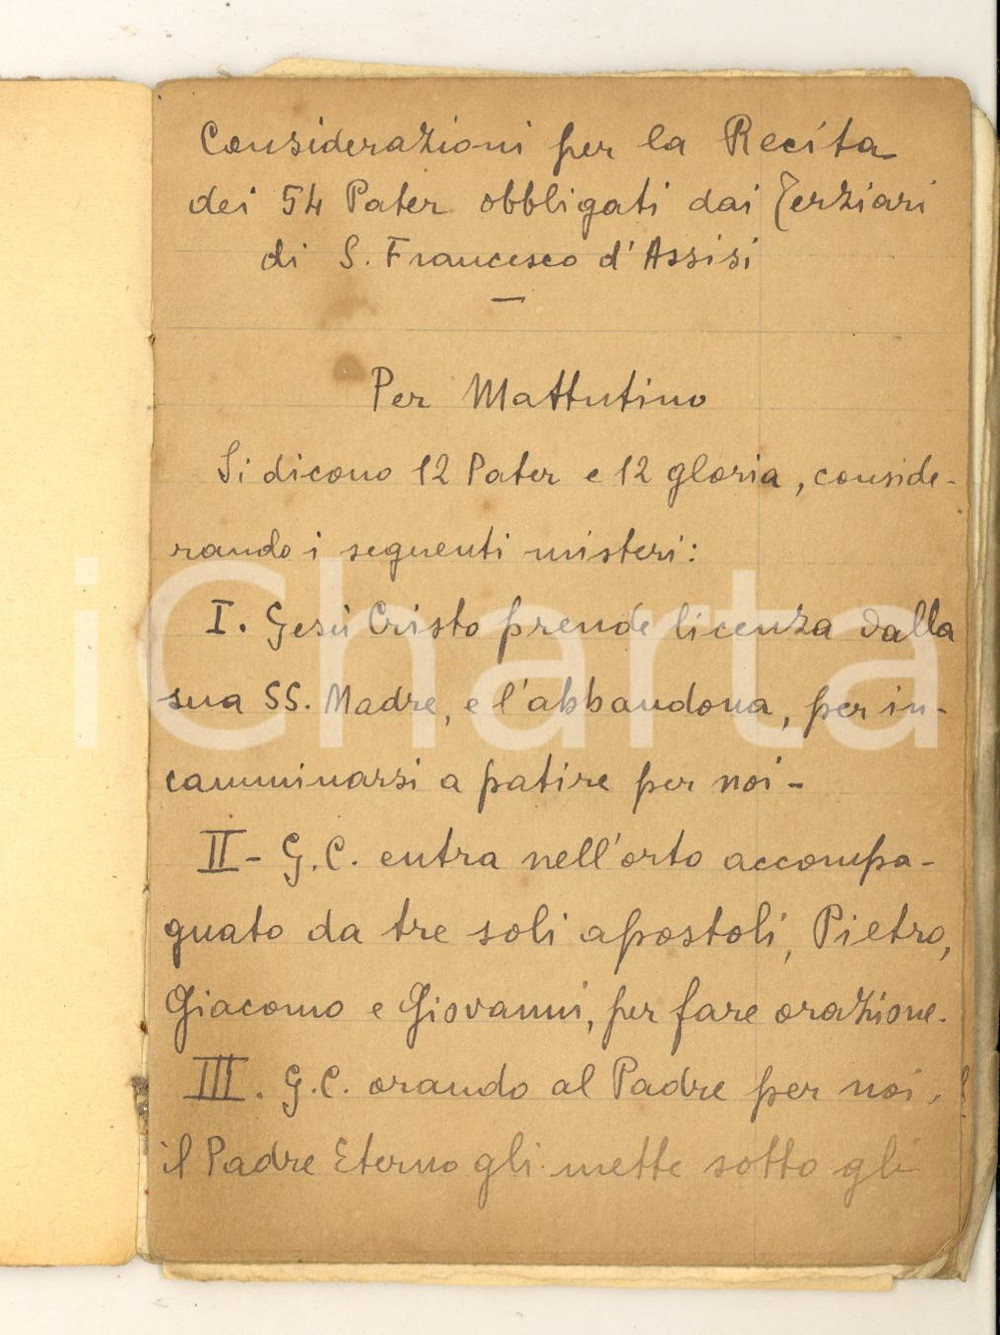 Considerazioni per la Recita
dei 54 Pater obbligati dai Terziari
di S. Francesco d'Assisi
—
Per Mattutino
Si dicono 12 Pater e 12 gloria, conside-
rando i seguenti misteri:
I. Gesù Cristo prende licenza dalla
sua SS. Madre, e l'abbandona, per in-
camminarsi a patire per noi -
II - G.C. entra nell'orto accompa-
gnato da tre soli apostoli, Pietro,
Giacomo e Giovanni, per fare orazione.
III. G.C. orando al Padre per noi,
il Padre Eterno gli mette sotto gli
iCharta